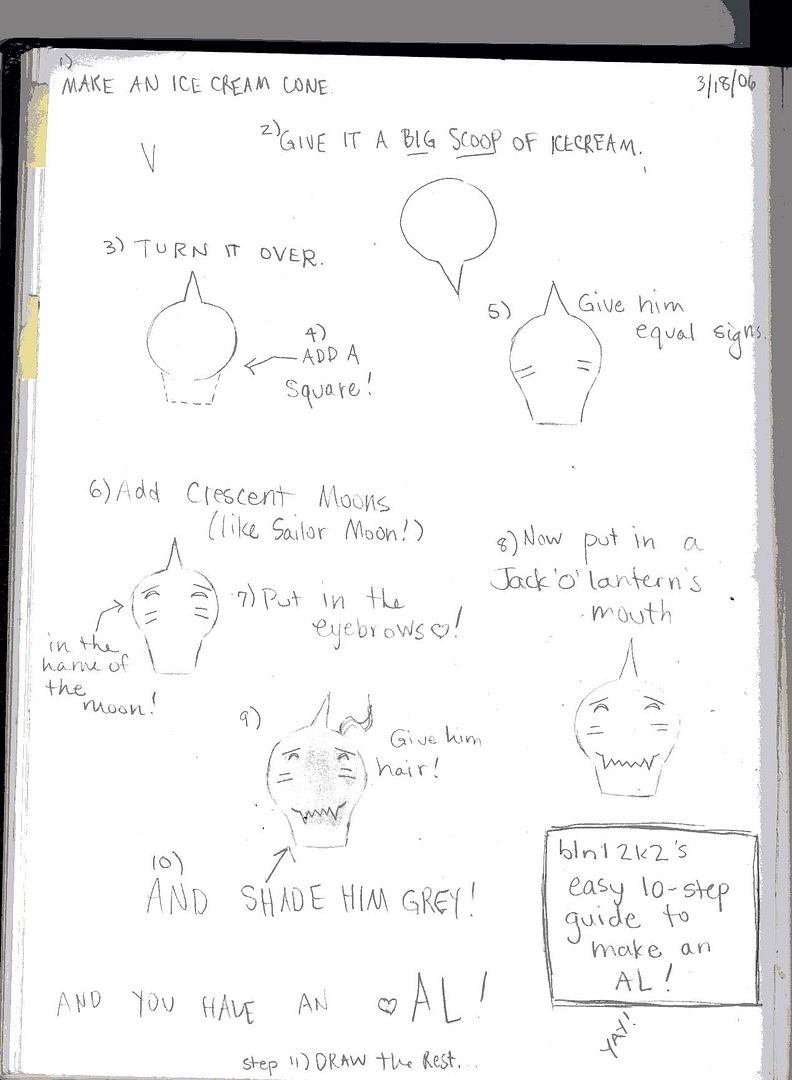 1)
MAKE AN ICE CREAM CONE.
3/18/06
2) GIVE IT A BIG SCOOP OF ICECREAM.
3) TURN IT OVER.
4)
ADD A
Square!
5) Give him
equal signs.
6) Add Crescent Moons
(like Sailor Moon!)
in the
name of
the
moon!
7) Put in the
eyebrows ♡!
8) Now put in a
Jack'o'lantern's
mouth
9)
Give him
hair!
10)
AND SHADE HIM GREY!
AND YOU HAVE AN ♡ AL!
bln12k2's
easy 10-step
guide to
make an
AL!
YAY!
step 11) DRAW the Rest...